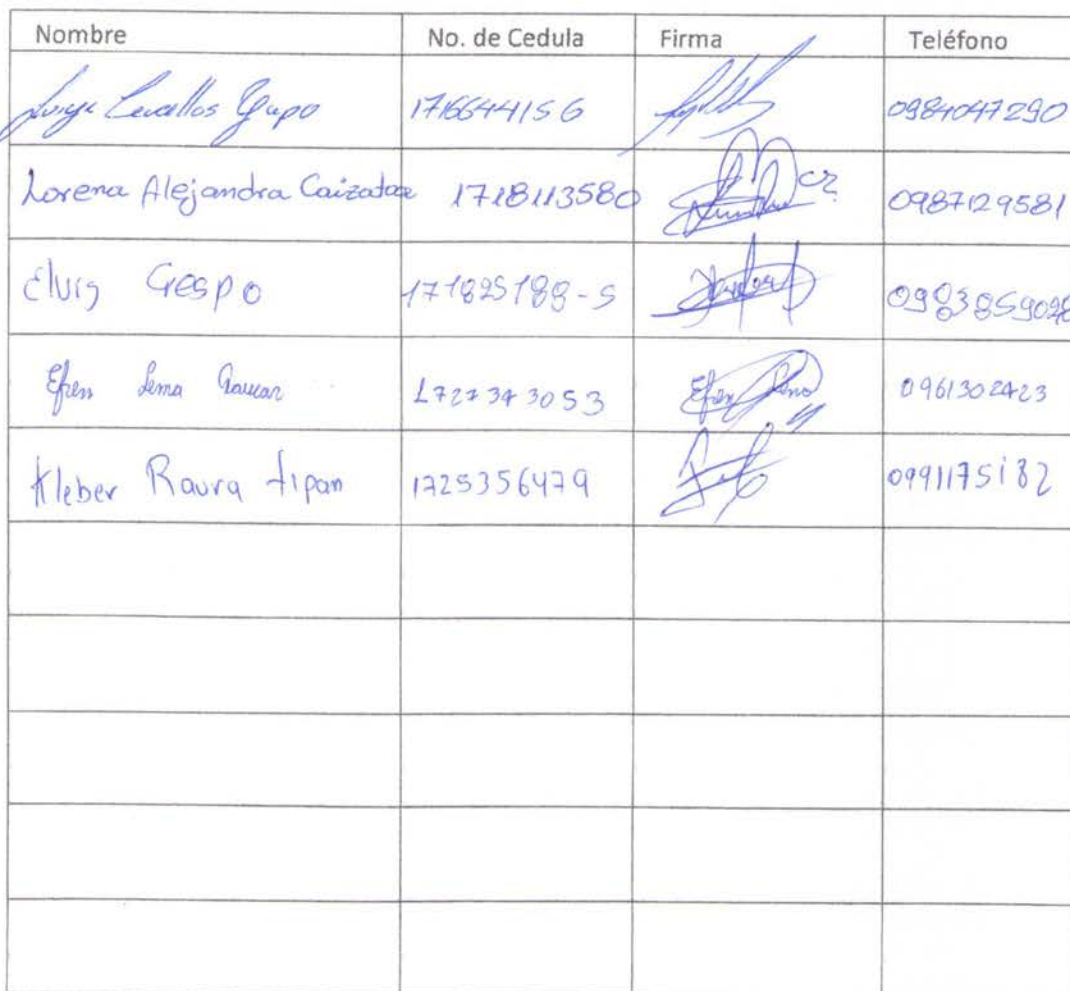 Nombre No. de Cedula Firma Teléfono
Jorge Cevallos 1716644156 0984047290
Lorena Alejandra Caizatoa 1718113580 0987129581
Elvis Crespo 171825188-5 098385902
Efren Lema 1727343053 Efren Lema 0961302423
Kleber Raura tipan 1725356479 0991175182